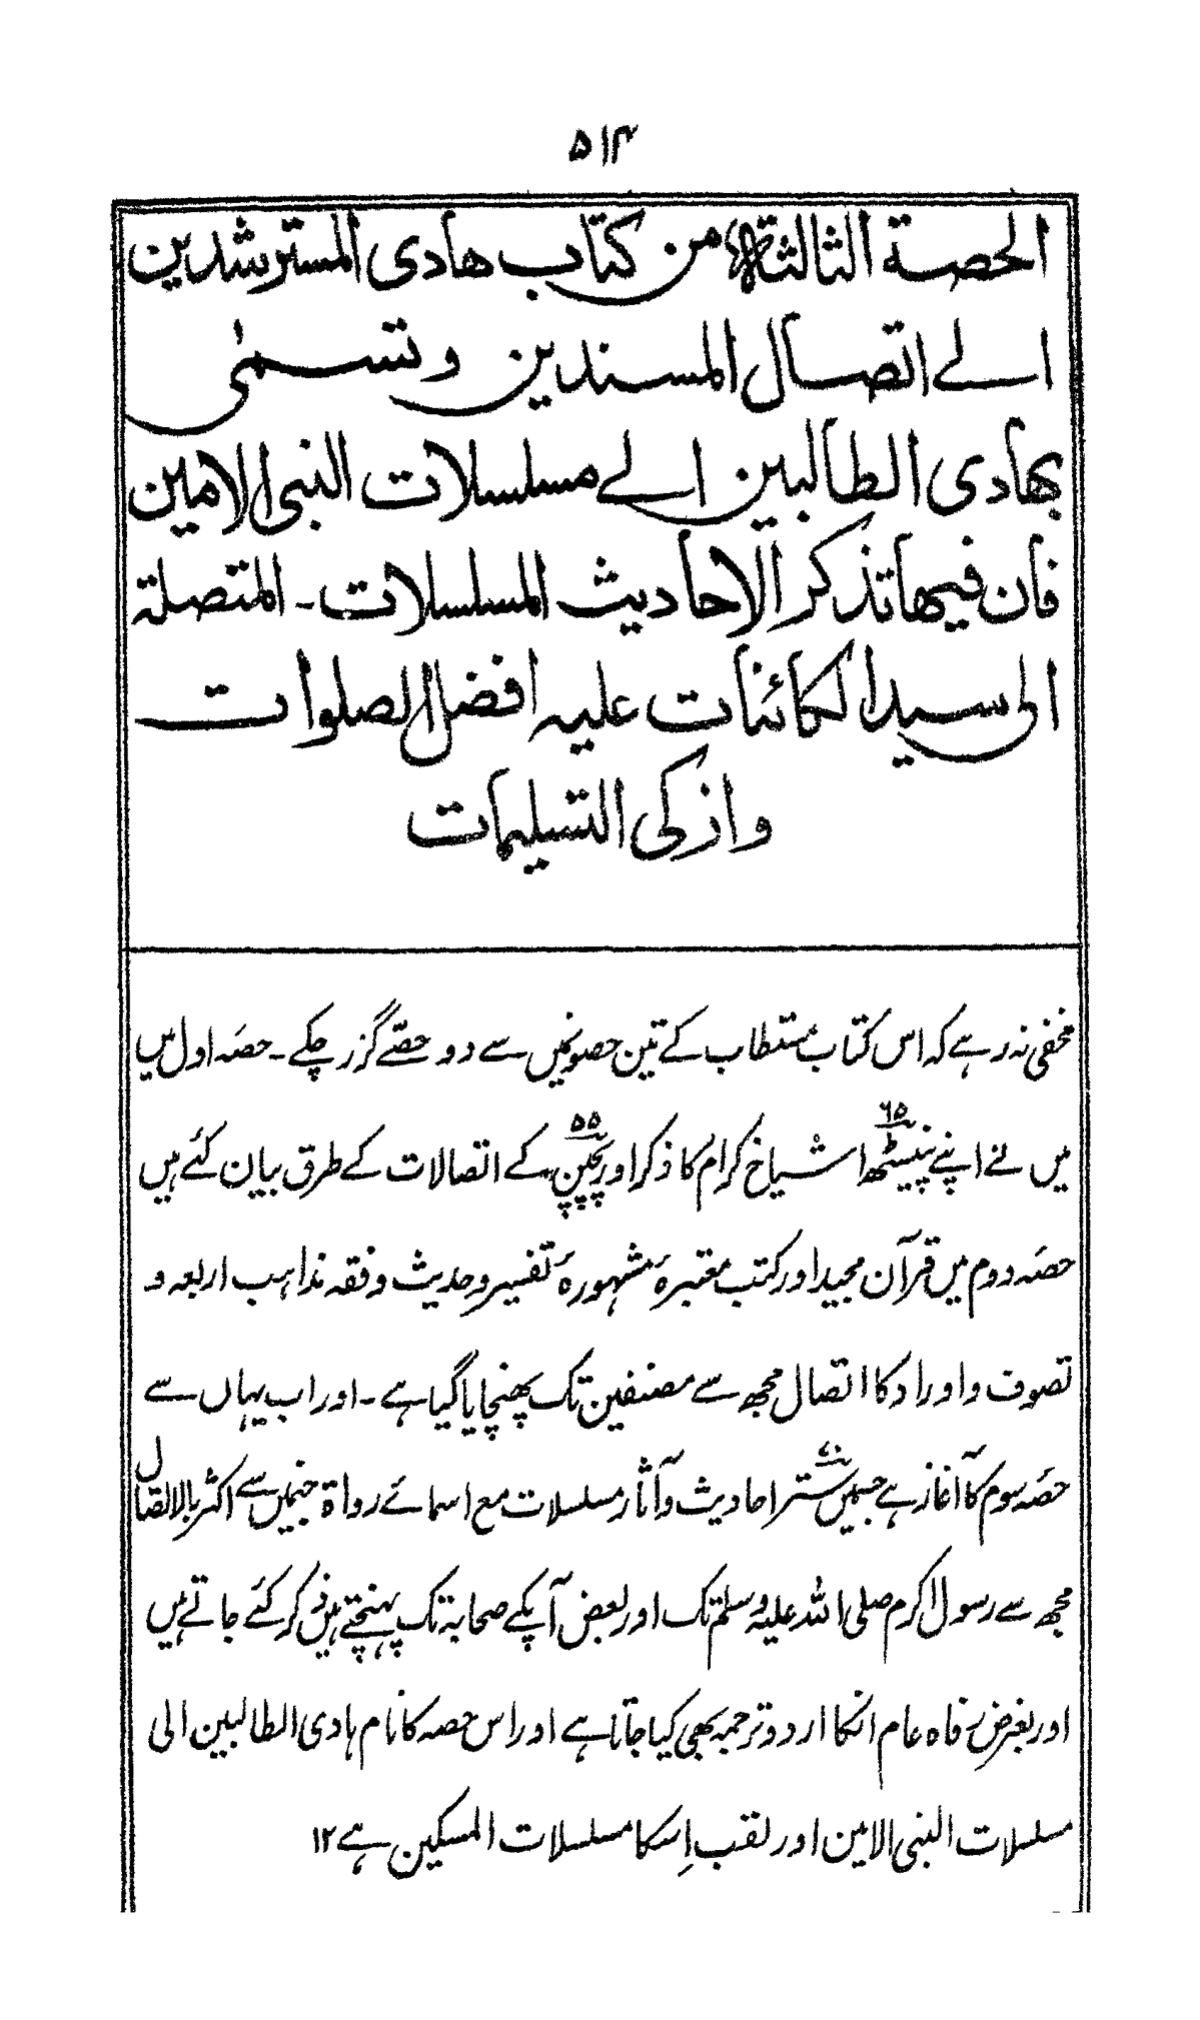 ۵۱۴
الحصة الثالثة من كتاب هادى المسترشدين
الے اتصال المسندين وتسمىٰ
بهادى الطالبين الے مسلسلات النبى الامين
فان فيها تذكر الاحاديث المسلسلات ـ المتصلة
الى سيد الكائنات عليه افضل الصلوات
وازكى التسليمات
مخفی نہ رہے کہ اس کتاب مستطاب کے تین حصونمیں سے دو حصّے گزر چکے ۔ حصۂ اول میں
میں نے اپنے پینسٹھ ۶۵ اشیاخ کرام کا ذکر اور پچپن ۵۵ کے اتصالات کے طرق بیان کئے ہیں
حصۂ دوم میں قرآن مجید اور کتب معتبرۂ مشہورۂ تفسیر و حدیث و فقہ مذاہب اربعہ و
تصوف و اوراد کا اتصال مجھ سے مصنفین تک پھنچایا گیا ہے ۔ اور اب یہاں سے
حصۂ سوم کا آغاز ہے جسمیں ستر ۷۰ احادیث و آثار مسلسلات مع اسمائے رواۃ جنمیں سے اکثر بالاتصال
مجھ سے رسول اکرم صلی اللہ علیہ وسلم تک اور بعض آپکے صحابہ تک پہنچتے ہیں ذکر کئے جاتے ہیں
اور بغرض رفاہ عام انکا اردو ترجمہ بھی کیا جاتا ہے اور اس حصہ کا نام ہادی الطالبین الی
مسلسلات النبی الامین اور لقب اِسکا مسلسلات المسکین ہے ۱۲